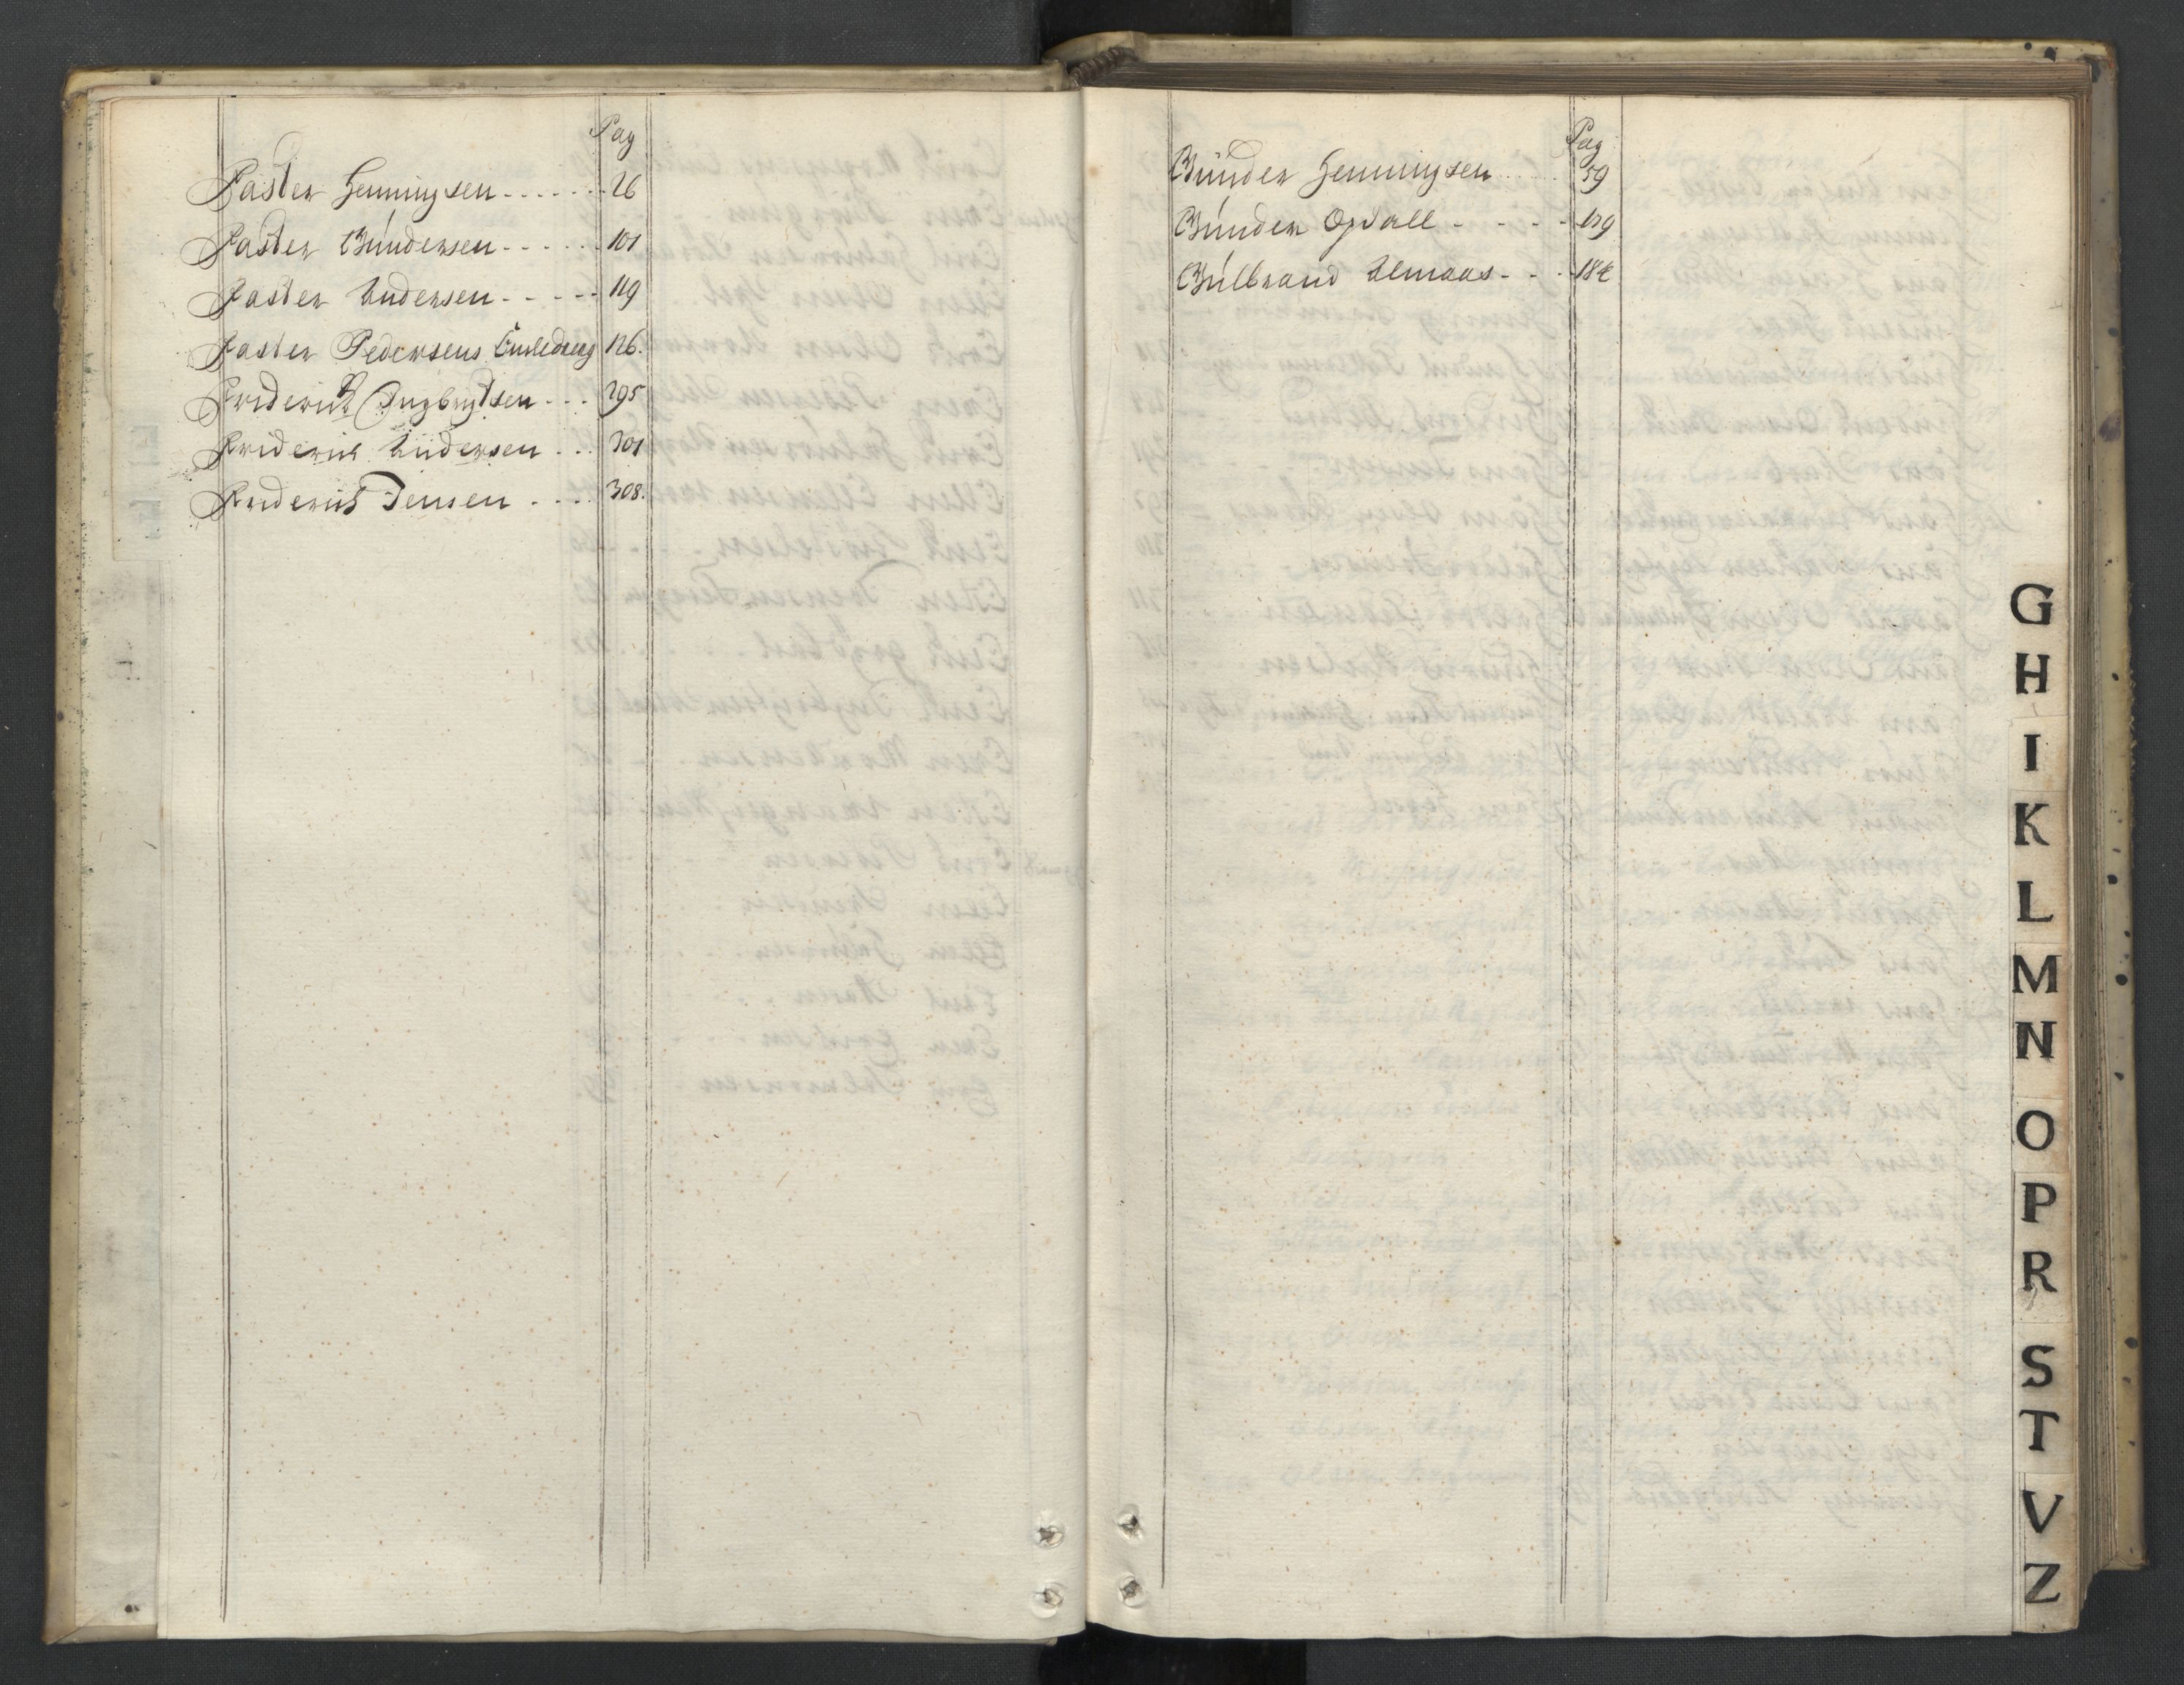 Pag
Faster Henningsen - - - - - - - 26
Faster Gundersen - - - - - - 101
Faster Andersen - - - - - 119
Faster Pedersens 126.
Friderich Ingbrigtsen - - - 295
Friderich Andersen - - - 301
Friderich Jensen - - - - 308.
Pag
Gunder Henningsen - - - - 59
Gunder Opdall - - - - - 179
Gulbrand Almaas - - - 182
G
H
I
K
L
M
N
O
P
R
S
T
V
Z